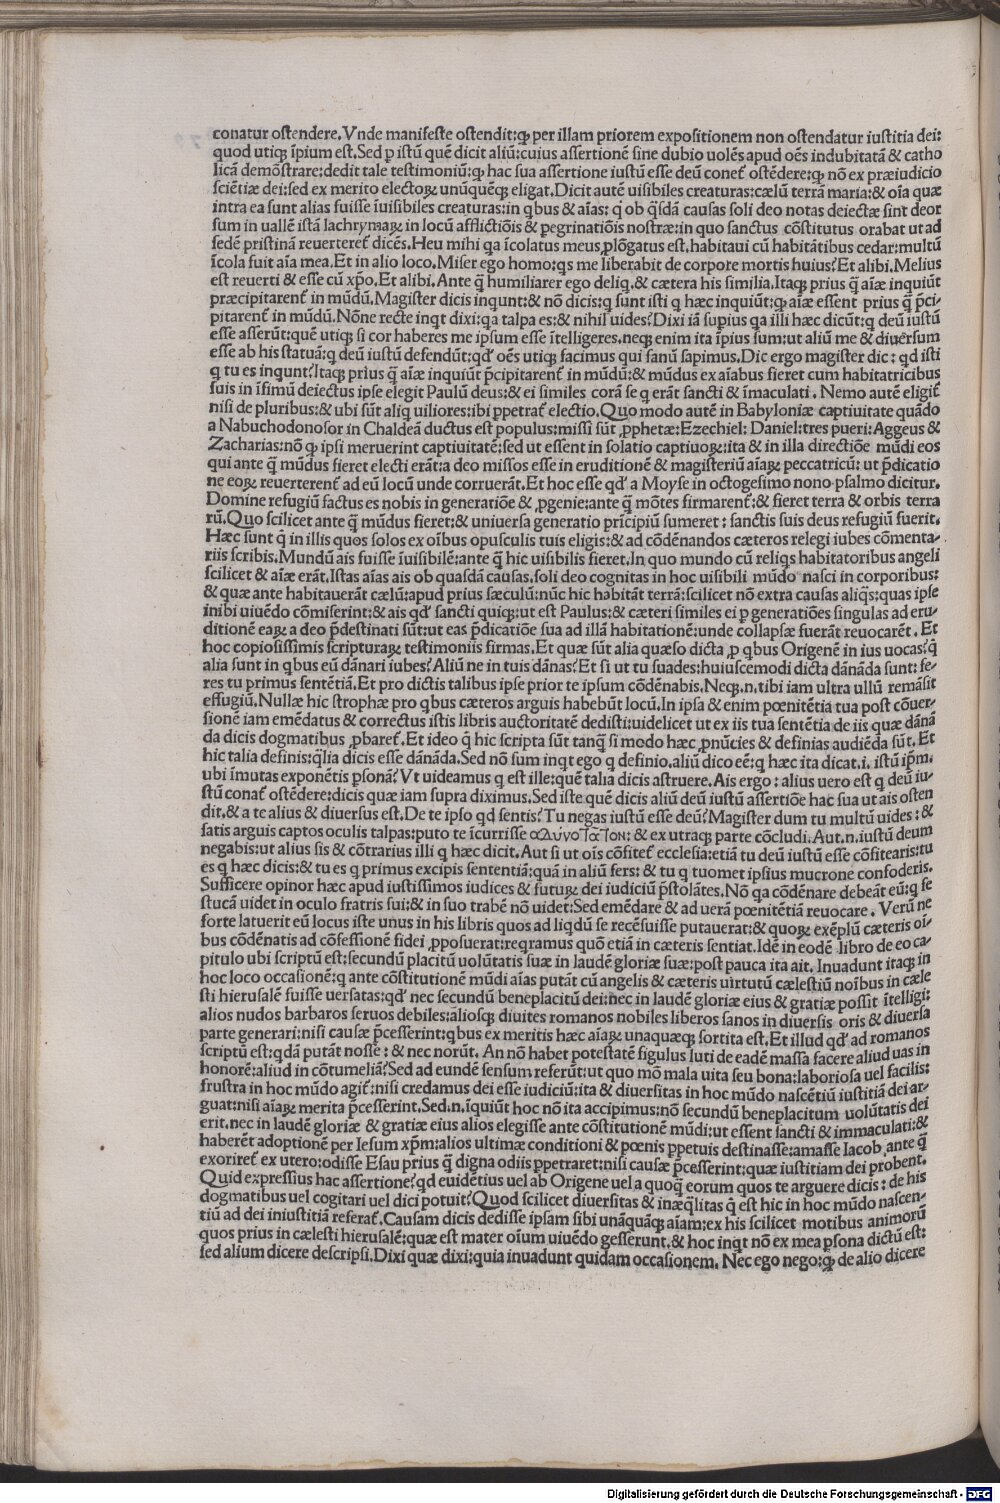 conatur ostendere.Vnde manifeste ostendit:ꝙ per illam priorem expositionem non ostendatur iustitia dei:
quod utiqꝫ īpium est.Sed p istū quē dicit aliū:cuius assertionē sine dubio uolēs apud oēs indubitatā & catho
licā demōstrare:dedit tale testimoniū:ꝙ hac sua assertione iustū esse deū conet᷑ ostēdere:ꝙ nō ex præiudicio
sciētiæ dei:sed ex merito electoꝝ unūquēqꝫ eligat.Dicit autē uisibiles creaturas:cælū terrā maria:& oīa quæ
intra ea sunt alias fuisse īuisibiles creaturas:in qbus & aīas: q̄ ob q̄sdā causas soli deo notas deiectæ sint deor
sum in uallē istā lachrymaꝝ in locū afflictiōis & pegrinatiōis nostræ:in quo sanctus cōstitutus orabat ut ad
sedē pristinā reuerteret᷑ dicēs.Heu mihi qa īcolatus meus ꝓlōgatus est,habitaui cū habitātibus cedar:multū
īcola fuit aīa mea.Et in alio loco.Miser ego homo:qs me liberabit de corpore mortis huius?Et alibi.Melius
est reuerti & esse cū xp̄o.Et alibi.Ante q̄ humiliarer ego deliq.& cætera his similia.Itaqꝫ prius q̄ aīæ inquiūt
præcipitarent᷑ in mūdū.Magister dicis inqunt:& nō dicis:q sunt isti q hæc inquiūt:ꝙ aīæ essent prius q̄ p̄ci-
pitarent᷑ in mūdū.Nōne recte inqt dixi:qa talpa es:& nihil uides?Dixi iā supius qa illi hæc dicūt:q deū iustū
esse asserūt:quē utiqꝫ si cor haberes me ipsum esse ītelligeres.neqꝫ enim ita īpius sum:ut aliū me & diuersum
esse ab his statuā:q deū iustū defendūt:qd᷑ oēs utiqꝫ facimus qui sanū sapimus.Dic ergo magister dic: qd isti
q tu es inqunt?Itaqꝫ prius q̄ aīæ inquiūt p̄cipitarent᷑ in mūdū:& mūdus ex aīabus fieret cum habitatricibus
suis in īfimū deiectus ipse elegit Paulū deus:& ei similes corā se q erāt sancti & īmaculati. Nemo autē eligit᷑
nisi de pluribus:& ubi sūt aliq uiliores:ibi ppetrat᷑ electio.Quo modo autē in Babyloniæ captiuitate quādo
a Nabuchodonosor in Chaldeā ductus est populus:missi sūt ꝓphetæ:Ezechiel: Daniel:tres pueri:Aggeus &
Zacharias:nō ꝙ ipsi meruerint captiuitatē:sed ut essent in solatio captiuoꝝ:ita & in illa directiōe mūdi eos
qui ante q̄ mūdus fieret electi erāt:a deo missos esse in eruditionē & magisteriū aīaꝝ peccatricū: ut p̄dicatio
ne eoꝝ reuerterent᷑ ad eū locū unde corruerāt.Et hoc esse qd᷑ a Moyse in octogesimo nono psalmo dicitur.
Domine refugiū factus es nobis in generatiōe & ꝓgenie:ante q̄ mōtes firmarent᷑:& fieret terra & orbis terra
rū.Quo scilicet ante q̄ mūdus fieret:& uniuersa generatio prīcipiū sumeret: sanctis suis deus refugiū fuerit.
Hæc sunt q̄ in illis quos solos ex oībus opusculis tuis eligis:& ad cōdēnandos cæteros relegi iubes cōmenta-
riis scribis.Mundū ais fuisse īuisibilē:ante q̄ hic uisibilis fieret.In quo mundo cū reliqs habitatoribus angeli
scilicet & aīæ erāt.Istas aīas ais ob quasdā causas.soli deo cognitas in hoc uisibili mūdo nasci in corporibus:
& quæ ante habitauerāt cælū:apud prius sæculū:nūc hic habitāt terrā:scilicet nō extra causas aliqs:quas ipse
inibi uiuēdo cōmiserint:& ais qd᷑ sancti quiqꝫ:ut est Paulus:& cæteri similes ei p generatiōes singulas ad eru-
ditionē eaꝝ a deo p̄destinati sūt:ut eas p̄dicatiōe sua ad illā habitationē:unde collapsæ fuerāt reuocarēt. Et
hoc copiosissimis scripturaꝝ testimoniis firmas.Et quæ sūt alia quæso dicta ꝓ qbus Origenē in ius uocas?q̄
alia sunt in qbus eū dānari iubes?Aliū ne in tuis dānas?Et si ut tu suades:huiuscemodi dicta dānāda sunt:fe-
res tu primus sentētiā.Et pro dictis talibus ipse prior te ipsum cōdēnabis.Neqꝫ.n.tibi iam ultra ullū remāsit
effugiū.Nullæ hic strophæ pro qbus cæteros arguis habebūt locū.In ipsa & enim pœnitētia tua post cōuer-
sionē iam emēdatus & correctus istis libris auctoritatē dedisti:uidelicet ut ex iis tua sentētia de iis quæ dānā
da dicis dogmatibus ꝓbaret᷑.Et ideo q̄ hic scripta sūt tanq̄ si modo hæc ꝓnūcies & definias audiēda sūt. Et
hic talia definis:q̄lia dicis esse dānāda.Sed nō sum inqt ego q definio.aliū dico eē:q hæc īta dicat.i. istū ip̄m.
ubi īmutas exponētis p̄sonā?Vt uideamus q est ille:quē talia dicis astruere. Ais ergo: alius uero est q deū iu-
stū conat᷑ ostēdere:dicis quæ iam supra diximus.Sed iste quē dicis aliū deū iustū assertiōe hac sua ut ais osten
dit.& a te alius & diuersus est.De te ipso qd sentis?Tu negas iustū esse deū?Magister dum tu multū uides: &
satis arguis captos oculis talpas:puto te īcurrisse αλυνοῖατον: & ex utraqꝫ parte cōcludi.Aut.n.iustū deum
negabis:ut alius sis & cōtrarius illi q hæc dicit.Aut si ut oīs cōfitet᷑ ecclesia:etiā tu deū iustū esse cōfitearis:tu
es q hæc dicis:& tu es q primus excipis sententiā:quā in aliū fers: & tu q tuomet ipsius mucrone confoderis.
Sufficere opinor hæc apud iustissimos iudices & futuꝝ dei iudiciū p̄stolātes.Nō qa cōdēnare debeāt eū:q fe
stucā uidet in oculo fratris sui:& in suo trabē nō uidet:Sed emēdare & ad uerā pœnitētiā reuocare. Verū ne
forte latuerit eū locus iste unus in his libris quos ad liqdū se recēsuisse putauerat:& quoꝝ exēplū cæteris oī-
bus cōdēnatis ad cōfessionē fidei ꝓposuerat:reqramus quō etiā in cæteris sentiat.Idē in eodē libro de eo ca-
pitulo ubi scriptū est:secundū placitū uolūtatis suæ in laudē gloriæ suæ:post pauca ita ait. Inuadunt itaqꝫ in
hoc loco occasionē:q ante cōstitutionē mūdi aīas putāt cū angelis & cæteris uirtutū cælestiū noībus in cæle
sti hierusalē fuisse uersatas:qd᷑ nec secundū beneplacitū dei:nec in laudē gloriæ eius & gratiæ possit ītelligi:
alios nudos barbaros seruos debiles:aliosqꝫ diuites romanos nobiles liberos sanos in diuersis oris & diuersa
parte generari:nisi causæ p̄cesserint:qbus ex meritis hæc aīaꝝ unaquæqꝫ sortita est.Et illud qd᷑ ad romanos
scriptū est:qdā putāt nosse: & nec norūt. An nō habet potestatē figulus luti de eadē massa facere aliud uas in
honorē:aliud in cōtumeliā?Sed ad eundē sensum referūt:ut quo mō mala uita seu bona:laboriosa uel facilis:
frustra in hoc mūdo agit᷑:nisi credamus dei esse iudiciū:ita & diuersitas in hoc mūdo nascētiū iustitiā dei ar-
guat:nisi aīaꝝ merita p̄cesserint.Sed.n.īquiūt hoc nō ita accipimus:nō secundū beneplacitum uolūtatis dei
erit.nec in laudē gloriæ & gratiæ eius alios elegisse ante cōstitutionē mūdi:ut essent sancti & immaculati:&
haberēt adoptionē per Iesum xp̄m:alios ultimæ conditioni & pœnis ppetuis destinasse:amasse Iacob ante q̄
exoriret᷑ ex utero:odisse Esau prius q̄ digna odiis ppetraret:nisi causæ p̄cesserint:quæ iustitiam dei probent.
Quid expressius hac assertione?qd euidētius uel ab Origene uel a quoq̄ eorum quos te arguere dicis: de his
dogmatibus uel cogitari uel dici potuit?Quod scilicet diuersitas & inæq̄litas q̄ est hic in hoc mūdo nascen-
tiū ad dei iniustitiā referat᷑.Causam dicis dedisse ipsam sibi unāquāqꝫ aīam:ex his scilicet motibus animorū
quos prius in cælesti hierusalē:quæ est mater oīum uiuēdo gesserunt.& hoc inqt nō ex mea p̄sona dictū est:
sed alium dicere descripsi.Dixi quæ dixi:quia inuadunt quidam occasionem. Nec ego nego:ꝙ de alio dicere
Digitalisierung gefördert durch die Deutsche Forschungsgemeinschaft - DFG